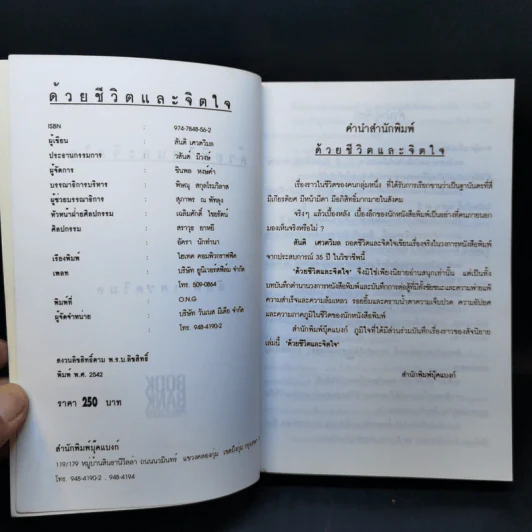 ด้วยชีวิตและจิตใจ
ISBN : 974-7848-56-2
ผู้เขียน : สันติ เศวตวิมล
ประธานกรรมการ : วสันต์ มีวงษ์
ผู้จัดการ : ชินพล หงษ์คำ
บรรณาธิการบริหาร : พิษณุ สกุลโรมวิลาส
ผู้ช่วยบรรณาธิการ : สุภาพร ณ พัทลุง
หัวหน้าฝ่ายศิลปกรรม : เฉลิมศักดิ์ ไชยรัตน์
ศิลปกรรม : สราวุธ ยาหยี
อัครา นักทำนา
เรียงพิมพ์ : ไฮเทค คอมพิวกราฟฟิค
เพลท : บริษัท ยูนิเวอรสฟิล์ม จำกัด
โทร. 509-0864
พิมพ์ที่ : O.N.G
ผู้จัดจำหน่าย : บริษัท วันเนส มีเดีย จำกัด
โทร. 948-4190-2
สงวนลิขสิทธิ์ตาม พ.ร.บ.ลิขสิทธิ์
พิมพ์ พ.ศ. 2542
ราคา 250 บาท
BOOK
BANK
สำนักพิมพ์บุ๊คแบงก์
119/179 หมู่บ้านสินธานีวิลล่า ถนนนวมินทร์ แขวงคลองกุ่ม เขตบึงกุ่ม
โทร. 948-4190-2 , 948-4194
คำนำสำนักพิมพ์
ด้วยชีวิตและจิตใจ
เรื่องราวในชีวิตของคนกลุ่มหนึ่ง ที่ได้รับการเรียกขานว่าเป็นฐานันดรที่สี่
มีเกียรติยศ มีหน้ามีตา มีอภิสิทธิ์มากมายในสังคม
จริงๆ แล้วเบื้องหลัง เบื้องลึกของนักหนังสือพิมพ์เป็นอย่างที่คนภายนอก
มองเห็นจริงหรือไม่ ?
สันติ เศวตวิมล ถอดชีวิตและจิตใจเขียนเรื่องจริงในวงการหนังสือพิมพ์
จากประสบการณ์ 35 ปี ในวิชาชีพนี้
"ด้วยชีวิตและจิตใจ" จึงมิใช่เพียงนิยายอ่านสนุกเท่านั้น แต่เป็นทั้ง
บทบันทึกตำนานวงการหนังสือพิมพ์และบันทึกการต่อสู้ที่มีทั้งชัยชนะและความพ่ายแพ้
ความสำเร็จและความล้มเหลว รอยยิ้มและคราบน้ำตาความเจ็บปวด ความอัปยศ
และความภาคภูมิในชีวิตของนักหนังสือพิมพ์
สำนักพิมพ์บุ๊คแบงก์ ภูมิใจที่ได้มีส่วนร่วมบันทึกเรื่องราวของสัจนิยาย
เล่มนี้ "ด้วยชีวิตและจิตใจ"
สำนักพิมพ์บุ๊คแบงก์